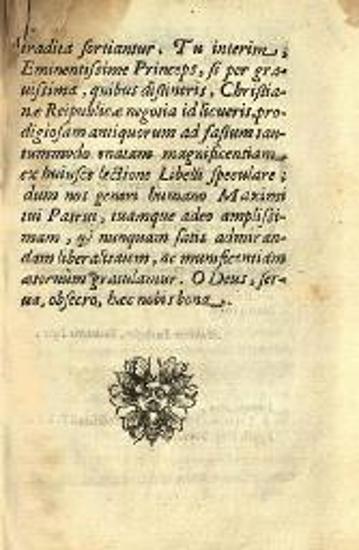 tradita sortiantur. Tu interim,
Eminentissime Princeps, si per gra-
uissima, quibus distineris, Christia-
næ Reipublicæ negotia id licueris, pro-
digiosam antiquorum ad fastum tan-
tummodo enatam magnificentiam
ex huiusce lectione Libelli speculare;
dum nos generi humano Maximi
tui Patrui, tuamque adeo amplissi-
mam, & nunquam satis admiran-
dam liberalitatem, ac munificentiam
æternùm gratulamur. O Deus, ser-
ua, obsecro, hæc nobis bona.